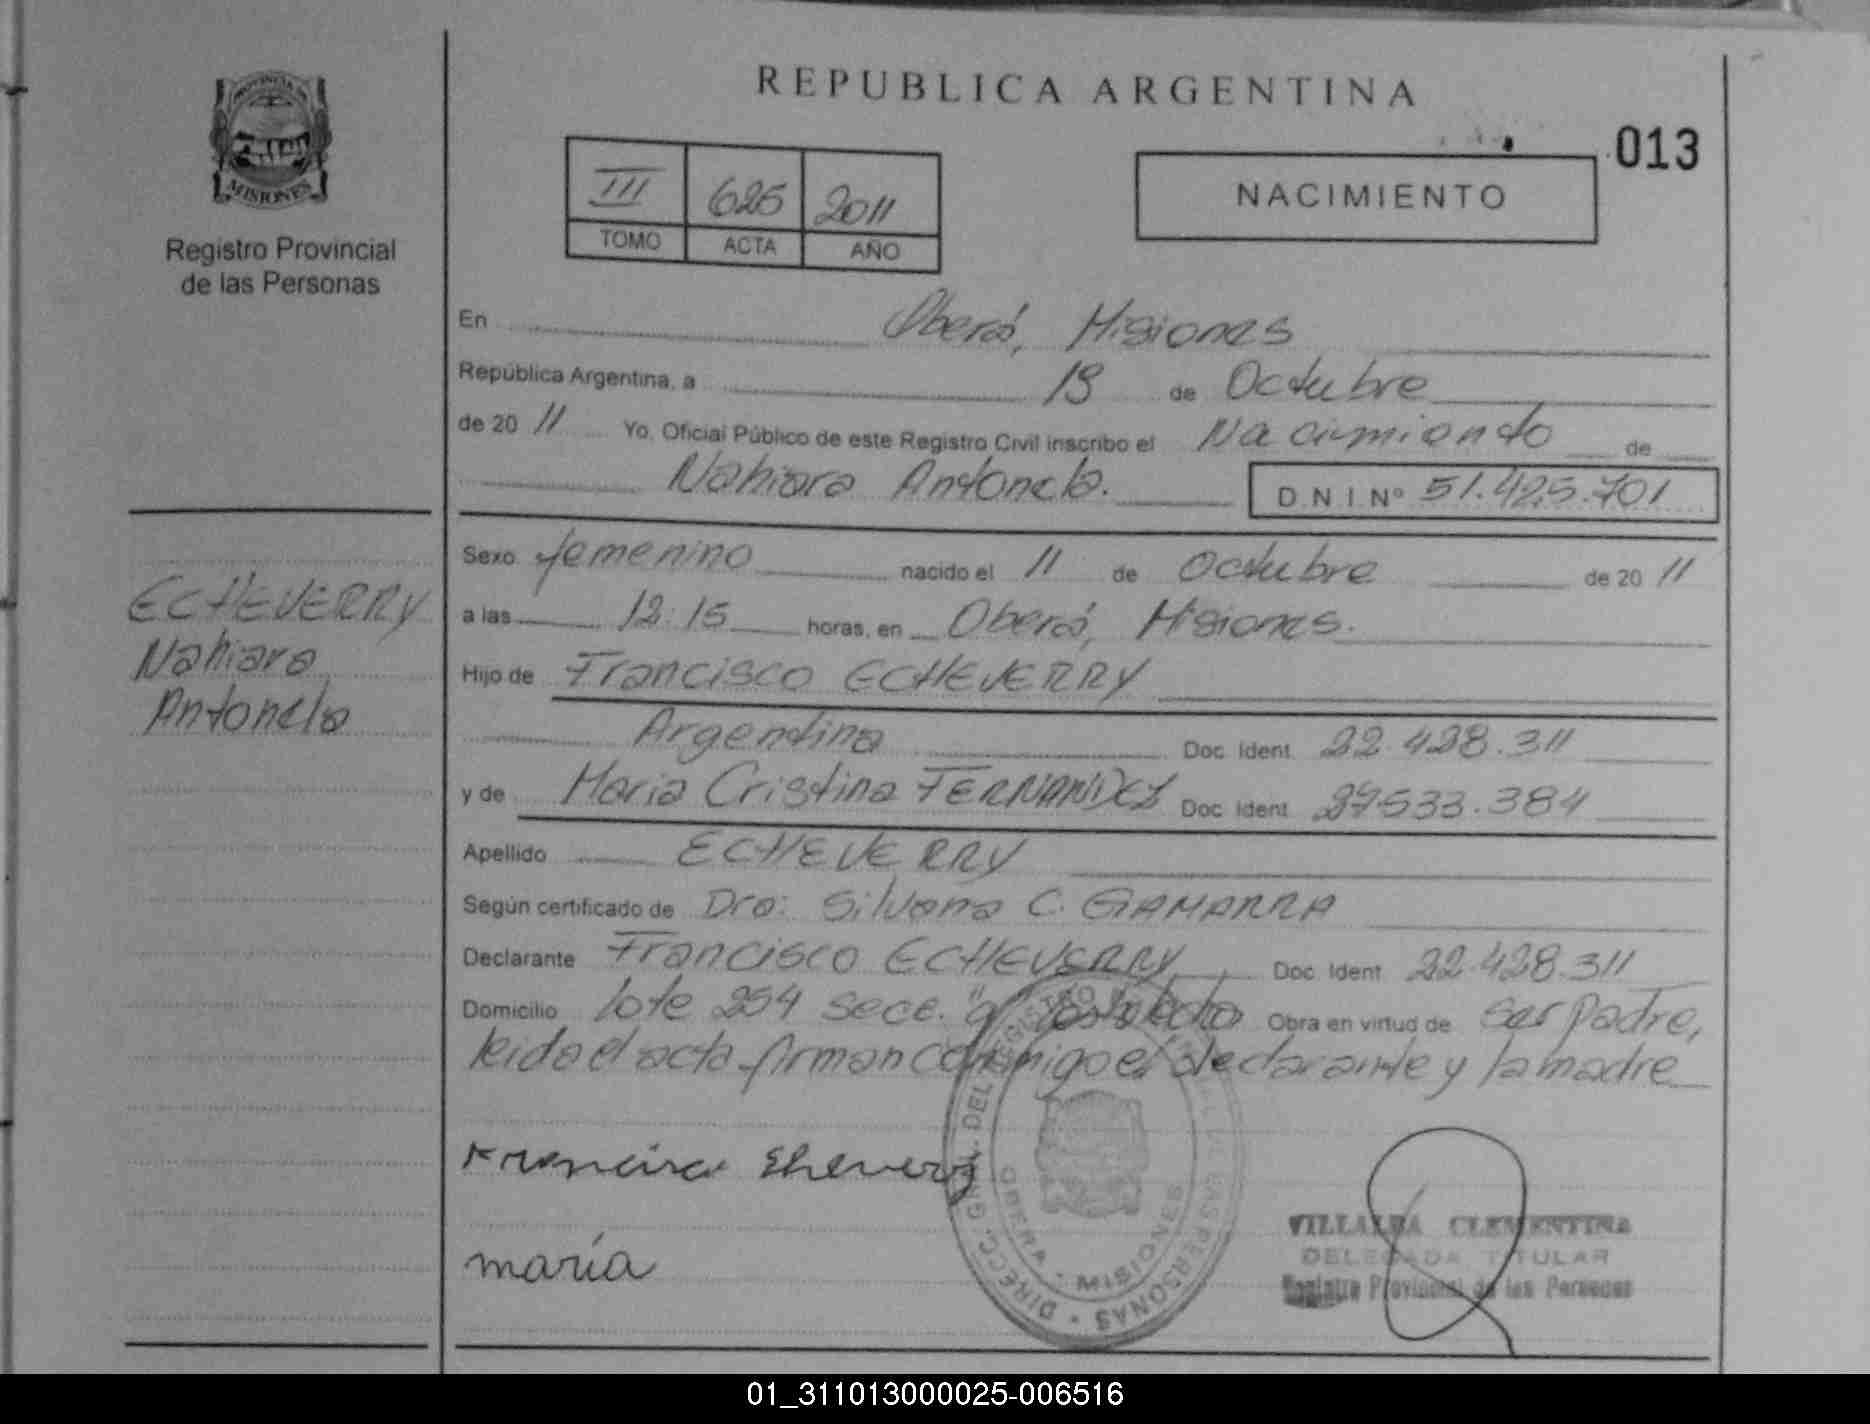 PROVINCIA DE
MISIONES
Registro Provincial
de las Personas
REPUBLICA ARGENTINA
013
III 625 2011
TOMO ACTA AÑO
NACIMIENTO
En Oberá, Misiones
República Argentina, a 19 de Octubre
de 20 11 Yo, Oficial Público de este Registro Civil inscribo el Nacimiento de
Nahiara Antonela.
D.N.I.Nº 51.425.701
ECHEVERRY
Nahiara
Antonela
Sexo femenino nacido el 11 de Octubre de 20 11
a las 12:15 horas, en Oberá, Misiones.
Hijo de Francisco ECHEVERRY
Argentina Doc. Ident. 22.428.311
y de Maria Cristina FERNANDEZ Doc. Ident. 27533.384
Apellido ECHEVERRY
Según certificado de Dra: Silvana C. GAMARRA
Declarante Francisco ECHEVERRY Doc. Ident. 22.428.311
Domicilio lote 254 secc. Obra en virtud de ser padre,
leida el acta firman conmigo el declarante y la madre
Francisco Eheverry
maría
DIRECC. GRAL. DEL REGISTRO PROVINCIAL DE LAS PERSONAS
OBERA - MISIONES
VILLALBA CLEMENTINA
DELEGADA TITULAR
Registro Provincial de las Personas
01_311013000025-006516